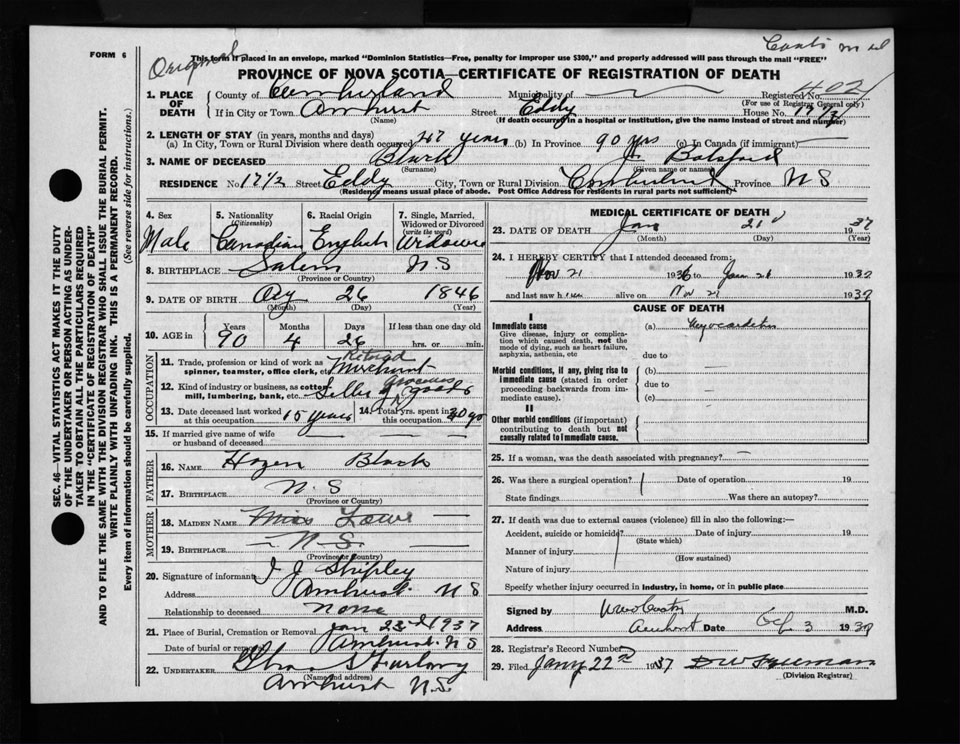 FORM 6
Originals
This form if placed in an envelope, marked "Dominion Statistics—Free, penalty for improper use $300," and properly addressed will pass through the mail "FREE"
PROVINCE OF NOVA SCOTIA—CERTIFICATE OF REGISTRATION OF DEATH
1. PLACE OF DEATH County of Cumberland Municipality of Registered No. 402
(For use of Registrar General only)
If in City or Town Amhurst Street Eddy House No. 17 1/2
(Name) (If death occurred in a hospital or institution, give the name instead of street and number)
2. LENGTH OF STAY (in years, months and days)
(a) In City, Town or Rural Division where death occurred 47 years (b) In Province 90 yrs (c) In Canada (if immigrant) —
3. NAME OF DECEASED Black J. Botsford
(Surname) (Given name or names)
RESIDENCE No. 17 1/2 Street Eddy City, Town or Rural Division Province N S
(Residency means usual place of abode. Post Office Address for residents in rural parts not sufficient)
4. Sex 5. Nationality 6. Racial Origin 7. Single, Married, Widowed or Divorced
(Citizenship) (write the word)
Male Canadian English Widower
8. BIRTHPLACE Salem N S
(Province or Country)
9. DATE OF BIRTH 26 1846
(Month) (Day) (Year)
10. AGE in Years Months Days If less than one day old
90 4 26 hrs. or min.
OCCUPATION
11. Trade, profession or kind of work as spinner, teamster, office clerk, etc. Retired
12. Kind of industry or business, as cotton mill, lumbering, bank, etc. groceries goods
13. Date deceased last worked at this occupation 15 years 14. Total yrs. spent in this occupation
15. If married give name of wife or husband of deceased
FATHER
16. NAME Hazen Black
17. BIRTHPLACE N. S
(Province or Country)
MOTHER
18. MAIDEN NAME Miss Lowe
19. BIRTHPLACE — N-S. —
(Province or Country)
20. Signature of informant J J Shipley
Address Amhurst N S
Relationship to deceased None
21. Place of Burial, Cremation or Removal Jan 23rd 1937
Date of burial or removal Amhurst N S
22. UNDERTAKER Furlong
(Name and address)
Amhurst N.S.
MEDICAL CERTIFICATE OF DEATH
23. DATE OF DEATH Jan 21 1937
(Month) (Day) (Year)
24. I HEREBY CERTIFY that I attended deceased from:
Nov 21 1936 to Jan 21 1937
and last saw him alive on Nov 21 1937
CAUSE OF DEATH
I
Immediate cause (a) Myocarditis
Give disease, injury or complication which caused death, not the mode of dying, such as heart failure, asphyxia, asthenia, etc
due to
Morbid conditions, if any, giving rise to immediate cause (stated in order proceeding backwards from immediate cause). (b) —
due to —
(c)
II
Other morbid conditions (if important) contributing to death but not causally related to immediate cause.
25. If a woman, was the death associated with pregnancy? —
26. Was there a surgical operation? Date of operation 19
State findings Was there an autopsy?
27. If death was due to external causes (violence) fill in also the following:—
Accident, suicide or homicide? Date of injury 19
(State which)
Manner of injury
(How sustained)
Nature of injury
Specify whether injury occurred in industry, in home, or in public place
Signed by M.D.
Address Amherst Date 3 1937
28. Registrar's Record Number
29. Filed Jany 22nd 1937 D W Freeman
(Division Registrar)
SEC. 46—VITAL STATISTICS ACT MAKES IT THE DUTY
OF THE UNDERTAKER OR PERSON ACTING AS UNDER-
TAKER TO OBTAIN ALL THE PARTICULARS REQUIRED
IN THE "CERTIFICATE OF REGISTRATION OF DEATH"
AND TO FILE THE SAME WITH THE DIVISION REGISTRAR WHO SHALL ISSUE THE BURIAL PERMIT.
WRITE PLAINLY WITH UNFADING INK. THIS IS A PERMANENT RECORD.
Every item of information should be carefully supplied. (See reverse side for instructions.)